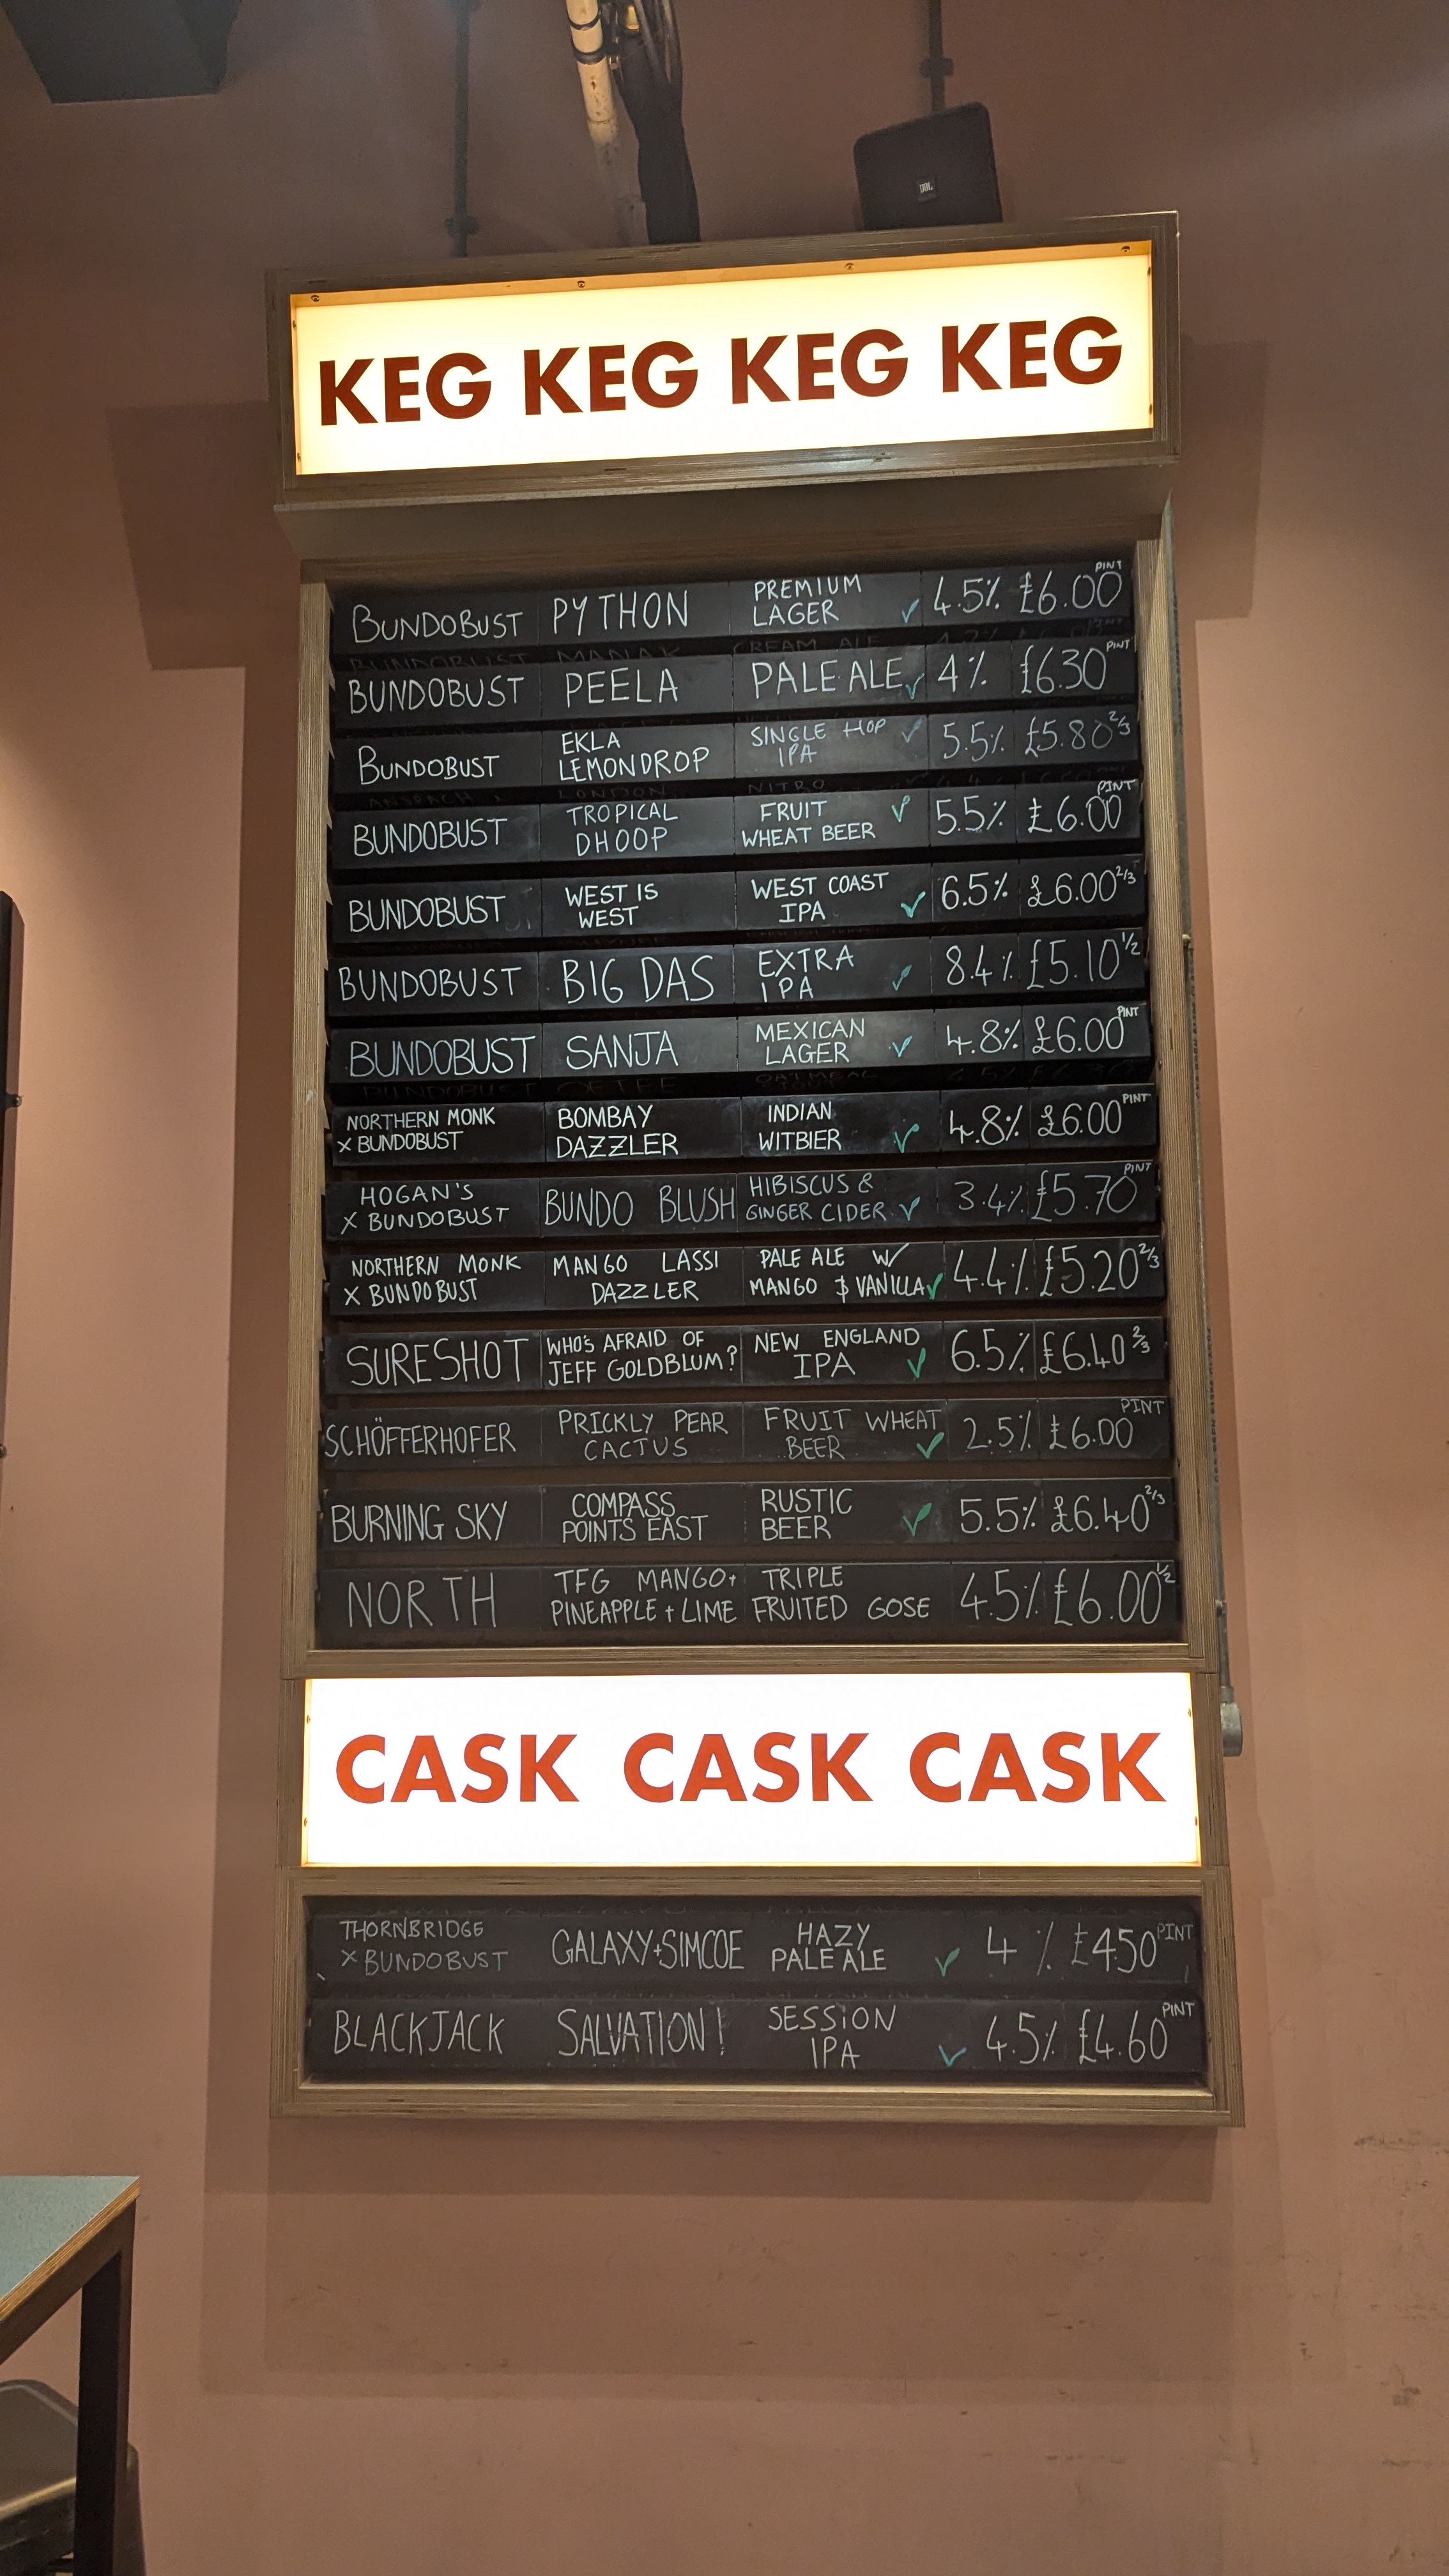 JBL
KEG KEG KEG KEG
BUNDOBUST PYTHON PREMIUM LAGER ✓ 4.5% £6.00 PINT
BUNDOBUST PEELA PALE ALE ✓ 4% £6.30 PINT
BUNDOBUST EKLA LEMONDROP SINGLE HOP IPA ✓ 5.5% £5.80 2/3
BUNDOBUST TROPICAL DHOOP FRUIT WHEAT BEER ✓ 5.5% £6.00 PINT
BUNDOBUST WEST IS WEST WEST COAST IPA ✓ 6.5% £6.00 2/3
BUNDOBUST BIG DAS EXTRA IPA ✓ 8.4% £5.10 1/2
BUNDOBUST SANJA MEXICAN LAGER ✓ 4.8% £6.00 PINT
NORTHERN MONK X BUNDOBUST BOMBAY DAZZLER INDIAN WITBIER ✓ 4.8% £6.00 PINT
HOGAN'S X BUNDOBUST BUNDO BLUSH HIBISCUS & GINGER CIDER ✓ 3.4% £5.70 PINT
NORTHERN MONK X BUNDOBUST MANGO LASSI DAZZLER PALE ALE W/ MANGO & VANILLA ✓ 4.4% £5.20 2/3
SURESHOT WHO'S AFRAID OF JEFF GOLDBLUM? NEW ENGLAND IPA ✓ 6.5% £6.40 2/3
SCHÖFFERHOFER PRICKLY PEAR CACTUS FRUIT WHEAT BEER ✓ 2.5% £6.00 PINT
BURNING SKY COMPASS POINTS EAST RUSTIC BEER ✓ 5.5% £6.40 2/3
NORTH TFG MANGO+ PINEAPPLE + LIME TRIPLE FRUITED GOSE 4.5% £6.00 1/2
CASK CASK CASK
THORNBRIDGE X BUNDOBUST GALAXY+SIMCOE HAZY PALE ALE ✓ 4% £4.50 PINT
BLACKJACK SALVATION! SESSION IPA ✓ 4.5% £4.60 PINT